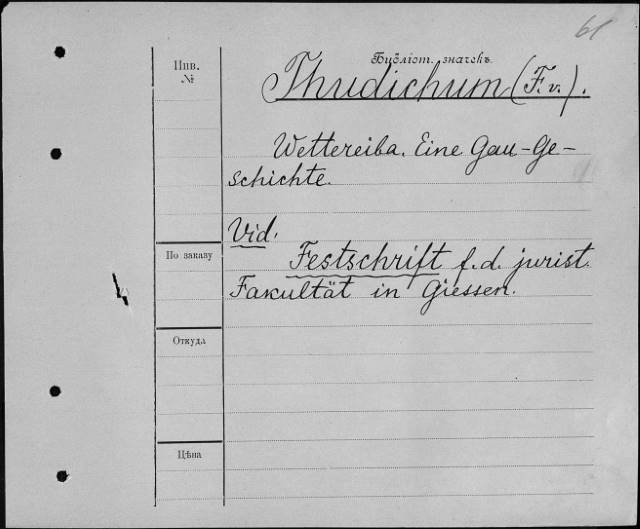 61
Инв.
№
Библіот. значекъ.
Thudichum (F. v.).
Wettereiba. Eine Gau-Ge-
schichte.
Vid.
По заказу
Festschrift f. d. jurist.
Fakultät in Giessen.
Откуда
Цѣна